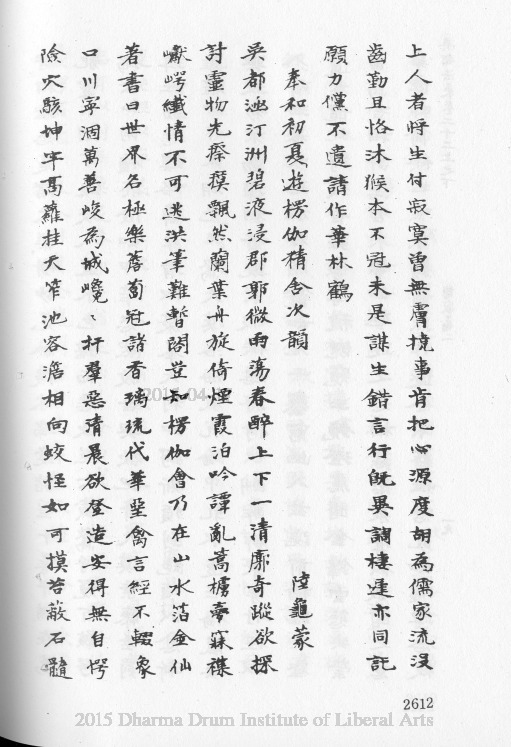 上人者將生付寂寞曾無膚撓事肯把心源度胡為儒家流沒
齒勤且恪沐猴本不冠未是謀生錯言行既異調棲遑亦同託
願力儻不遺請作華林鶴
奉和初夏遊楞伽精舍次韻
陸龜蒙
吳都涵汀洲碧液浸郡郭微雨蕩春醉上下一清廓奇蹤欲探
討靈物先瘵瘼飄然蘭葉舟旋倚煙霞泊吟譚亂篙櫓夢寐襍
巘崿纖情不可逃洪筆難暫閣豈知楞伽會乃在山水箔金仙
著書曰世界名極樂薝蔔冠諸香璃琉代華堊禽言經不輟象
口川寧涸萬善峻為城巉巉扞羣惡清晨欲登造安得無自愕
險穴駭坤牢高蘿挂天笮池容澹相向蛟怪如可摸苔蔽石髓
2612
2015 Dharma Drum Institute of Liberal Arts